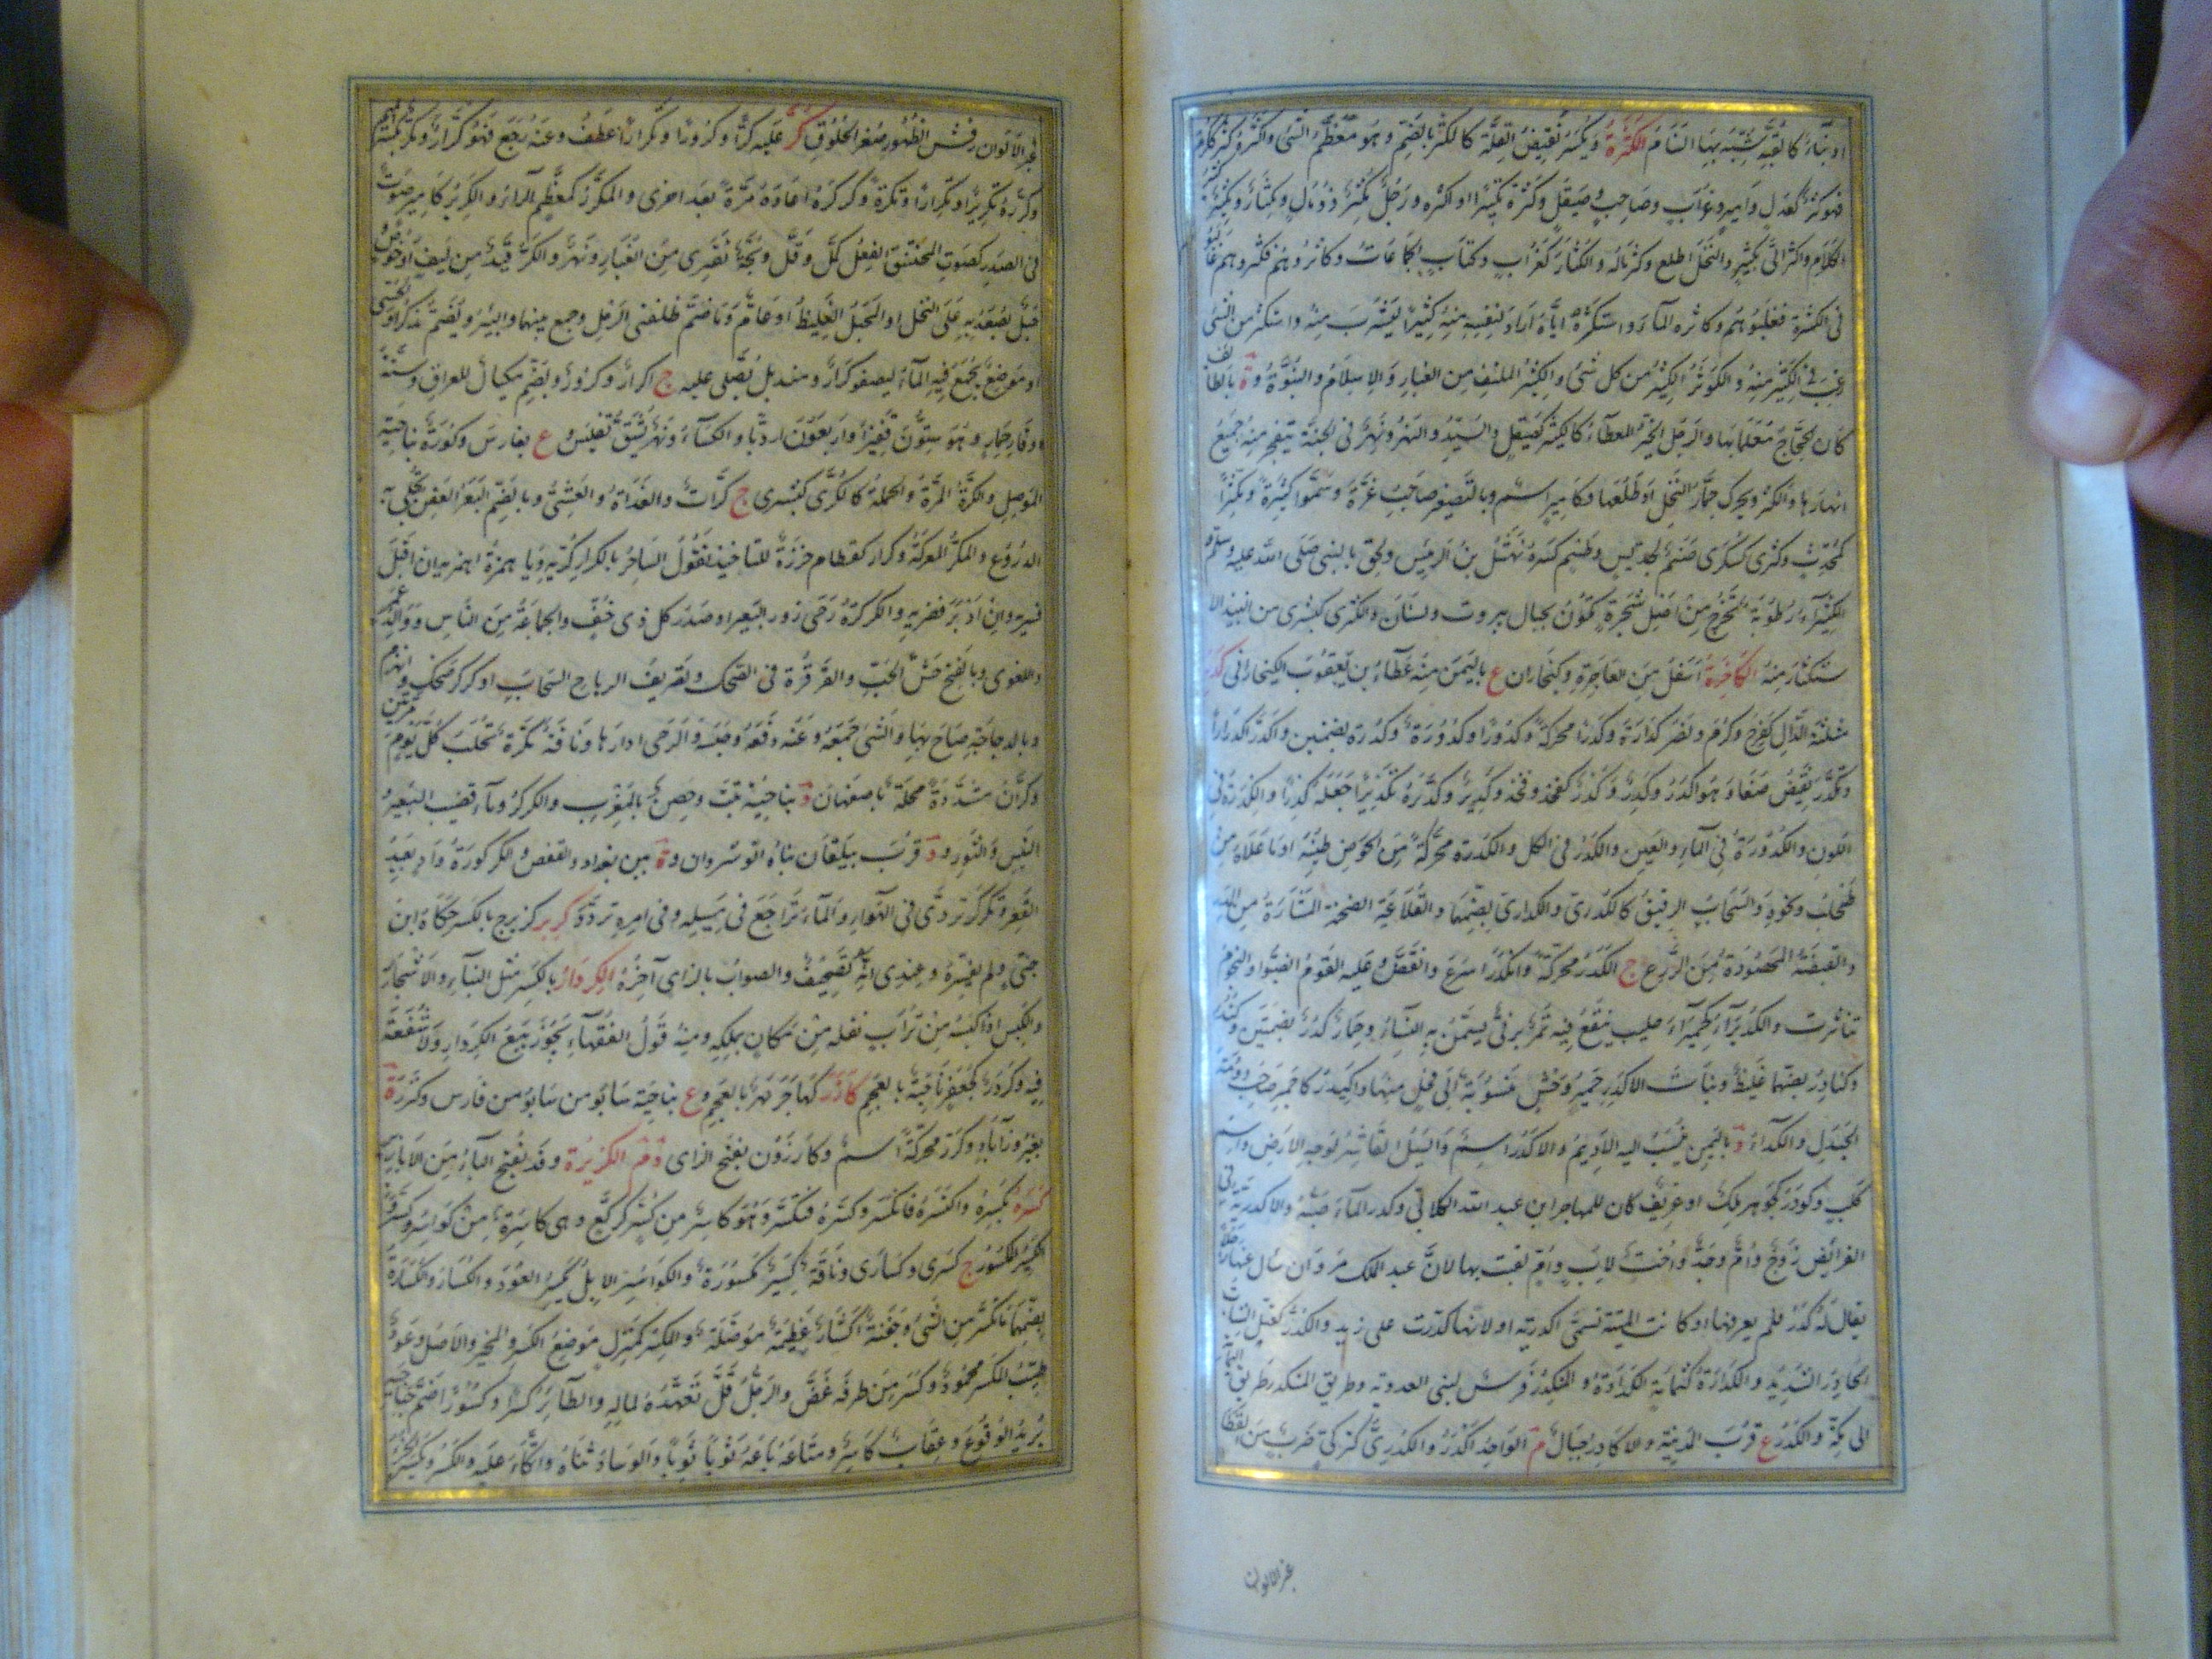 او بناء كالقبة شبه بها السنام الكثرة ويكسر نقيض القلة كالكثر بالضم وهو معظم الشئ واكثره كثر ككرم
فهو كثر كعدل وامير وغراب وصاحب وصيقل وكثره تكثيرا واكثره ورجل مكثر ذو مال ومكثار ومكثير كثير
الكلام واكثر اتى بكثير والنخل اطلع وكثر ماله والكثار كغراب وكتاب الجماعات وكاثروهم فكثروهم غالبوهم
فى الكثرة فغلبوهم وكاثره الماء واستكثره اياه اراد لنفسه منه كثيرا ليشرب منه واستكثر من الشئ
رغب فى الكثير منه والكوثر الكثير من كل شئ والكثير الملتف من الغبار والاسلام والنبوة وة بالطائف
كان الحجاج معلما بها والرجل الخير المعطاء كالكيثر كصيقل والسيد والنهر ونهر فى الجنة يتفجر منه جميع
انهارها والكثر ويحرك جمار النخل او طلعها وكامير اسم وبالتصغير صاحب عزة وسموا كثيرة ومكثرا
كمحدث وكثرى كسكرى صنم لجديس وطسم كسره نهشل بن الرئيس ولحق بالنبى صلى الله عليه وسلم
الكثيراء رطوبة تخرج من اصل شجرة تكون بجبال بيروت ولبنان والكثرى كبشرى من النبيذ الا
ستكثار منه الكاخرة اسفل من الجاعرة وكنخاران ع باليمن منه عطاء بن يعقوب الكيخارانى كدر
مثلثة الدال كفرح وكرم ونصر كدارة وكدرا محركة وكدورا وكدورة وكدرة بضمهن واكدر اكدرارا
وتكدر نقيض صفا وهو اكدر وكدر وكدر كفخذ وفخذ وكدير وكدره تكديرا جعله كدرا والكدرة فى
اللون والكدورة فى الماء والعين والكدر فى الكل والكدرة محركة من الحوض طينه او ما علاه من
طحلب ونحوه والسحاب الرقيق كالكدرى والكدارى بضمهما والقلاعة الضخمة المثارة من المدر
والقبضة المحصودة من الزرع ج الكدر محركة وانكدر اسرع وانقض وعليه القوم انصبوا والنجوم
تناثرت والكديراء كحميراء حليب ينقع فيه تمر برنى يسمن به النساء وحمار كدر بضمتين وكندر
وكنادر بضمهما غليظ وبنات الاكدر حمير وحش منسوبة الى فحل منها واكيدر كاحيمر صاحب دومة
الجندل والكدراء د باليمن ينسب اليه الاديم والاكدر اسم والسيل القاشر لوجه الارض واسم
كلب وكودر كجوهر ملك او عريف كان للمهاجر ابن عبد الله الكلابى وكدر الماء صبه والاكدرية فى
الفرائض زوج وام وجد واخت لاب وام لقبت بها لان عبد الملك مروان سال عنها رجلا
يقال له اكدر فلم يعرفها او كانت الميتة تسمى اكدرية او لانها كدرت على زيد والكدر كعتل الشاب
الحادر الشديد والكدارة كثمامة الكدادة والمنكدر فرس لبنى العدوية وطريق المنكدر طريق اليمامة
الى مكة والكدر ع قرب المدينة والاكادر جبال م الواحد اكدر والكدرى كتركى ضرب من القطا
غبر الالوان
غبر الالوان رقش الظهور صفر الحلوق كر عليه كرا وكرورا وتكرارا عطف وعنه رجع فهو كرار ومكر بكسر الميم
وكرره تكريرا وتكرارا وتكرة وكركره اعاده مرة بعد اخرى والمكرر كمعظم الراء والكرير كامير صوت
فى الصدر كصوت المختنق الفعل كمل وقل وبحة تعترى من الغبار ونهر والكر قيد من ليف او خوص و
حبل يصعد به على النخل او الحبل الغليظ او عام وما ضم ظلفتى الرحل وجمع بينهما والبئر ويضم مذكر او الحسى
او موضع يجمع فيه الماء ليصفو كرار ومنديل يصلى عليه ج اكرار وكرور وبضم مكيال للعراق وستة
اوقار حمار وهو ستون قفيزا او اربعون اردبا والكساء ونهر يشق تفليس و ع بفارس وكورة بناحية
الموصل والكرة المرة والحملة كالكرى كبشرى ج كرات والغداة والعشى وبالضم البعر العفن تجلى به
الدروع والمكر المعركة وكرار كقطام خرزة للتاخيذ تقول الساحرة يا كرار كريه ويا همرة اهمريه ان اقبل
فسريه وان ادبر فضريه والكركرة رحى زور البعير او صدر كل ذى خف والجماعة من الناس ووالد عمر
واللغوى وبالفتح جش الحب والقرقرة فى الضحك وتصريف الرياح السحاب اوكركر ضحك وانهزم
وبالدجاجة صاح بها والشئ جمعه وعنه دفعه وحبسه والرحى ادارها وناقة مكرة تحلب كل يوم مرتين
وكران مشددة محلة باصفهان و د بناحية تبت وحصن بالمغرب والكركر وعاء قضيب البعير
والتيس والثور و د قرب بيلقان بناه انوشروان وة بين بغداد والقفص والكركورة واد بعيد
القعر وتكركر تردى فى الهواء والماء تراجع فى مسيله وفى امره تردد كربر كزبرج بالكسر حكاه ابن
جنى ولم يفسره وعندى انه تصحيف والصواب بالزاى آخره الكردار بالكسر مثل البناء والاشجار
والكبس اذا كبسه من تراب نقله من مكان يملكه ومنه قول الفقهاء يجوز بيع الكردار ولا شفعة
فيه وكردر كجعفر ناحية بالعجم كازر كهاجر نهر بالعجم و ع بناحية سابور من سابور من فارس وكزرة ة
بفيروزآباد وكزر محركة اسم وكازرون بفتح الزاى د م الكزبرة وقد تفتح الباء من الابازير
كسره يكسره واكتسره فانكسر وكسره فتكسر وهو كاسر من كسر كركع وهى كاسرة من كواسر وكسر و
الكسير المكسور ج كسرى وكسارى وناقة كسير مكسورة والكواسر الابل تكسر العود والكسار والكسارة
بضمهما ما تكسر من الشئ وجفنة اكسار عظيمة موصلة والمكسر كمنزل موضع الكسر والمخبر والاصل وعود
طيب المكسر محمود وكسر من طرفه غض والرجل قل تعهده لماله والطائر كسرا وكسورا ضم جناحيه
يريد الوقوع وعقاب كاسر ومتاعه باعه ثوبا ثوبا والوساد ثناه واتكأ عليه والكسر ويكسر